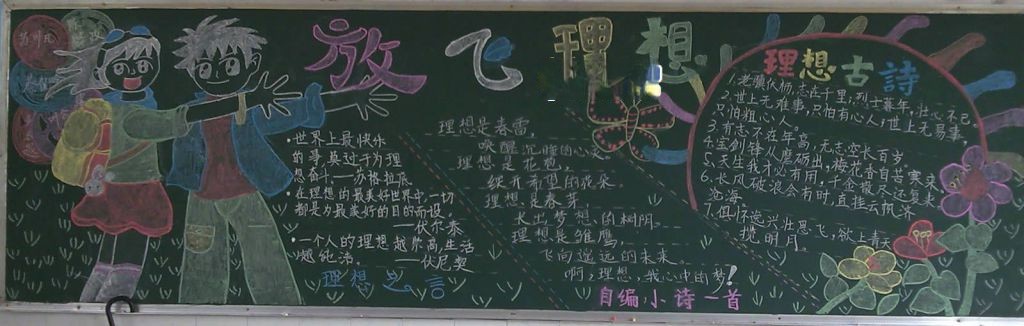 放飞理想
·世界上最快乐
的事莫过于为理
想奋斗——苏格拉底
·在理想的最美好世界中,一切
都是为最美好的目的而设。
——伏尔泰
·一个人的理想越崇高,生活
越纯洁。——伏尼契
理想之言
理想是春雷,
唤醒沉睡的心灵。
理想是花苞,
绽开希望的花朵。
理想是春芽,
长出梦想的树阴。
理想是雏鹰,
飞向遥远的未来。
啊,理想,我心中的梦!
自编小诗一首
理想古詩
1.老骥伏枥,志在千里,烈士暮年,壮心不已。
2.世上无难事,只怕有心人;世上无易事,
只怕粗心人。
3.有志不在年高,无志空长百岁。
4.宝剑锋从磨砺出,梅花香自苦寒来
5.天生我才必有用,千金散尽还复来
6.长风破浪会有时,直挂云帆济
沧海。
7.俱怀逸兴壮思飞,欲上青天
揽明月。